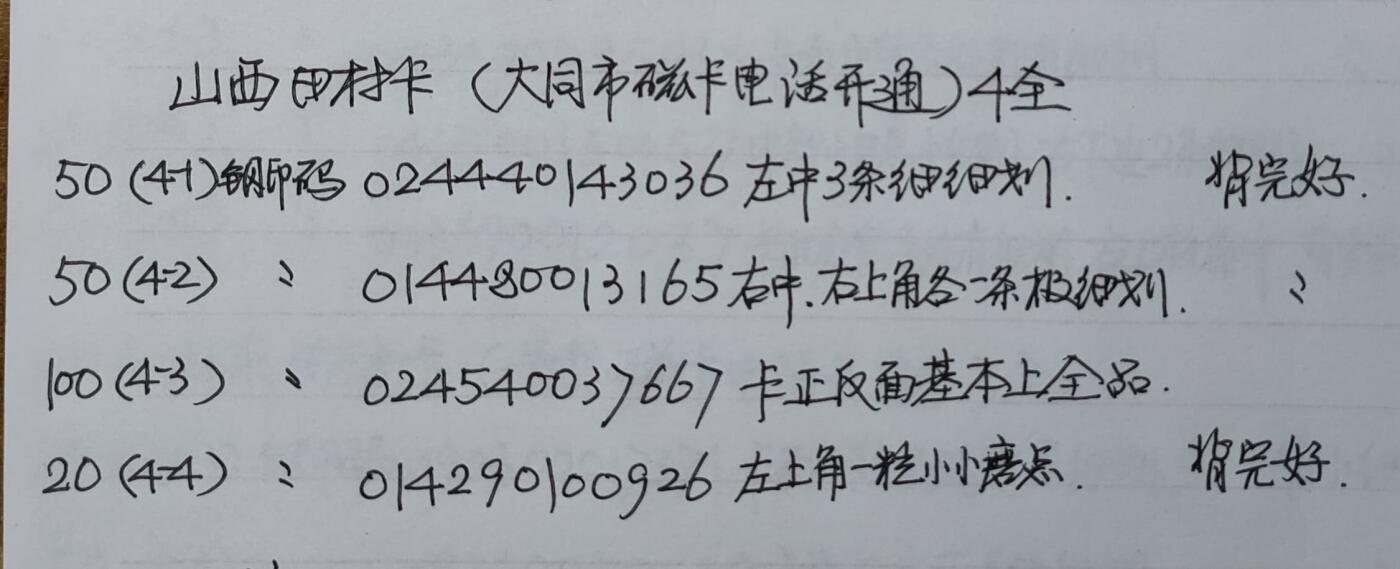 山西田村卡（大同市磁卡电话开通）4全
50(4-1)钢印码 024440143036 左中3条细细划. 背完好.
50(4-2) 〃 014480013165 右中.右上角各一条极细划. 〃
100(4-3) 〃 024540037667 卡正反面基本上全品.
20(4-4) 〃 014290100926 左上角一粒小小磨点. 背完好.